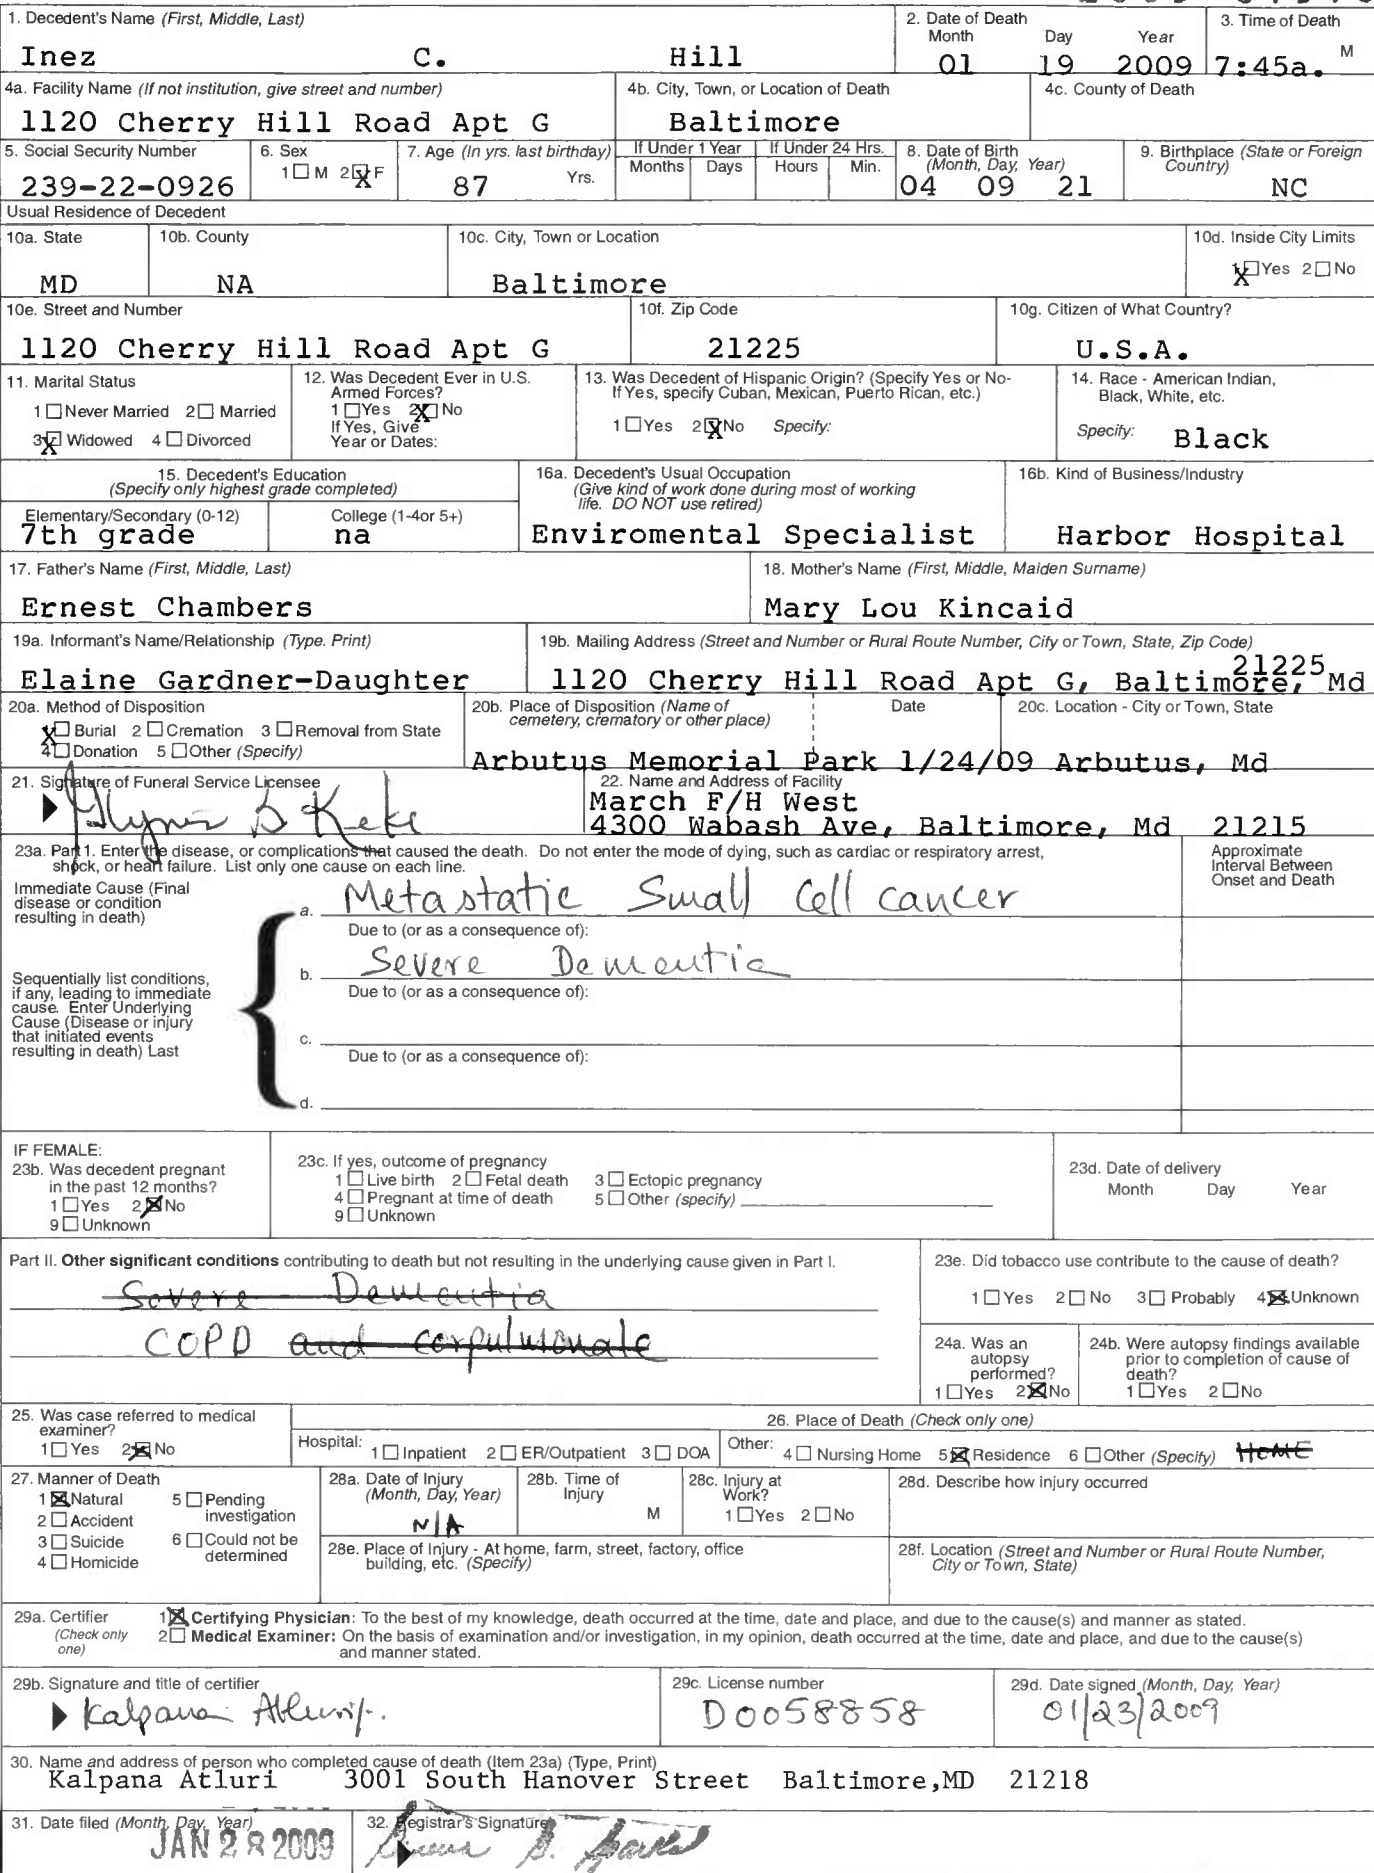 1. Decedent's Name (First, Middle, Last)
2. Date of Death
Month Day Year
3. Time of Death
Inez C. Hill
01 19 2009
7:45a. M
4a. Facility Name (If not institution, give street and number)
4b. City, Town, or Location of Death
4c. County of Death
1120 Cherry Hill Road Apt G
Baltimore
5. Social Security Number
6. Sex
7. Age (In yrs. last birthday)
If Under 1 Year
If Under 24 Hrs.
8. Date of Birth
(Month, Day, Year)
9. Birthplace (State or Foreign
Country)
1 M 2 X F
Yrs.
Months Days Hours Min.
239-22-0926
87
04 09 21
NC
Usual Residence of Decedent
10a. State
10b. County
10c. City, Town or Location
10d. Inside City Limits
X Yes 2 No
MD
NA
Baltimore
10e. Street and Number
10f. Zip Code
10g. Citizen of What Country?
1120 Cherry Hill Road Apt G
21225
U.S.A.
11. Marital Status
1 Never Married 2 Married
3 X Widowed 4 Divorced
12. Was Decedent Ever in U.S.
Armed Forces?
1 Yes 2 X No
If Yes, Give
Year or Dates:
13. Was Decedent of Hispanic Origin? (Specify Yes or No-
If Yes, specify Cuban, Mexican, Puerto Rican, etc.)
1 Yes 2 X No Specify:
14. Race - American Indian,
Black, White, etc.
Specify: Black
15. Decedent's Education
(Specify only highest grade completed)
Elementary/Secondary (0-12)
College (1-4or 5+)
7th grade
na
16a. Decedent's Usual Occupation
(Give kind of work done during most of working
life. DO NOT use retired)
Enviromental Specialist
16b. Kind of Business/Industry
Harbor Hospital
17. Father's Name (First, Middle, Last)
18. Mother's Name (First, Middle, Maiden Surname)
Ernest Chambers
Mary Lou Kincaid
19a. Informant's Name/Relationship (Type. Print)
19b. Mailing Address (Street and Number or Rural Route Number, City or Town, State, Zip Code)
Elaine Gardner-Daughter
21225
1120 Cherry Hill Road Apt G, Baltimore, Md
20a. Method of Disposition
X Burial 2 Cremation 3 Removal from State
4 Donation 5 Other (Specify)
20b. Place of Disposition (Name of
cemetery, crematory or other place)
Date
20c. Location - City or Town, State
Arbutus Memorial Park 1/24/09 Arbutus, Md
21. Signature of Funeral Service Licensee
22. Name and Address of Facility
March F/H West
4300 Wabash Ave, Baltimore, Md 21215
23a. Part 1. Enter the disease, or complications that caused the death. Do not enter the mode of dying, such as cardiac or respiratory arrest,
shock, or heart failure. List only one cause on each line.
Approximate
Interval Between
Onset and Death
Immediate Cause (Final
disease or condition
resulting in death)
a. Metastatic Small Cell cancer
Due to (or as a consequence of):
b. Severe Dementia
Due to (or as a consequence of):
Sequentially list conditions,
if any, leading to immediate
cause. Enter Underlying
Cause (Disease or injury
that initiated events
resulting in death) Last
c.
Due to (or as a consequence of):
d.
IF FEMALE:
23b. Was decedent pregnant
in the past 12 months?
1 Yes 2 X No
9 Unknown
23c. If yes, outcome of pregnancy
1 Live birth 2 Fetal death 3 Ectopic pregnancy
4 Pregnant at time of death 5 Other (specify)
9 Unknown
23d. Date of delivery
Month Day Year
Part II. Other significant conditions contributing to death but not resulting in the underlying cause given in Part I.
Severe Dementia
COPD and corpulmonale
23e. Did tobacco use contribute to the cause of death?
1 Yes 2 No 3 Probably 4 X Unknown
24a. Was an
autopsy
performed?
1 Yes 2 X No
24b. Were autopsy findings available
prior to completion of cause of
death?
1 Yes 2 No
25. Was case referred to medical
examiner?
1 Yes 2 X No
26. Place of Death (Check only one)
Hospital: 1 Inpatient 2 ER/Outpatient 3 DOA
Other: 4 Nursing Home 5 X Residence 6 Other (Specify) HOME
27. Manner of Death
1 X Natural 5 Pending
investigation
2 Accident
3 Suicide 6 Could not be
determined
4 Homicide
28a. Date of Injury
(Month, Day, Year)
N/A
28b. Time of
Injury
M
28c. Injury at
Work?
1 Yes 2 No
28d. Describe how injury occurred
28e. Place of Injury - At home, farm, street, factory, office
building, etc. (Specify)
28f. Location (Street and Number or Rural Route Number,
City or Town, State)
29a. Certifier
(Check only
one)
1 X Certifying Physician: To the best of my knowledge, death occurred at the time, date and place, and due to the cause(s) and manner as stated.
2 Medical Examiner: On the basis of examination and/or investigation, in my opinion, death occurred at the time, date and place, and due to the cause(s)
and manner stated.
29b. Signature and title of certifier
29c. License number
29d. Date signed (Month, Day, Year)
Kalpana Atluri
D0058858
01/23/2009
30. Name and address of person who completed cause of death (Item 23a) (Type, Print)
Kalpana Atluri 3001 South Hanover Street Baltimore,MD 21218
31. Date filed (Month, Day, Year)
JAN 28 2009
32. Registrar's Signature